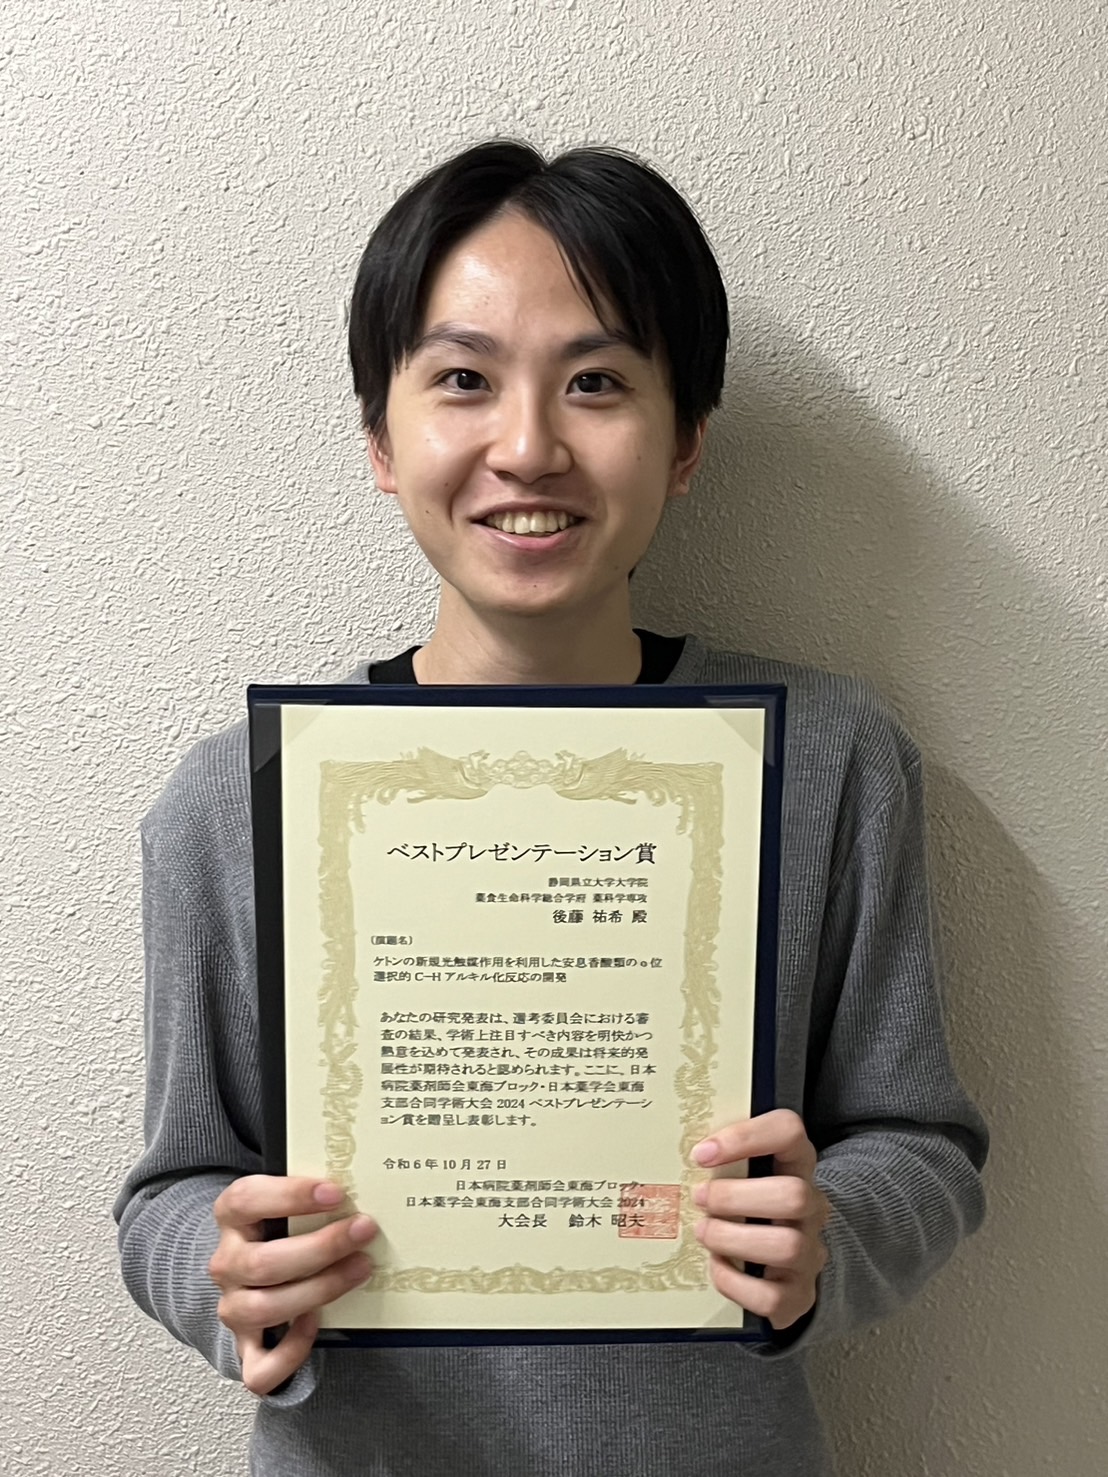 ベストプレゼンテーション賞
静岡県立大学大学院
薬食生命科学総合学府 薬科学専攻
後藤 祐希 殿
(演題名)
ケトンの新規光触媒作用を利用した安息香酸類のo位
選択的C−Hアルキル化反応の開発
あなたの研究発表は、選考委員会における審
査の結果、学術上注目すべき内容を明快かつ
熱意を込めて発表され、その成果は将来的発
展性が期待されると認められます。ここに、日本
病院薬剤師会東海ブロック・日本薬学会東海
支部合同学術大会2024ベストプレゼンテーシ
ョン賞を贈呈し表彰します。
令和6年10月27日
日本病院薬剤師会東海ブロック・
日本薬学会東海支部合同学術大会2024
大会長 鈴木 昭夫